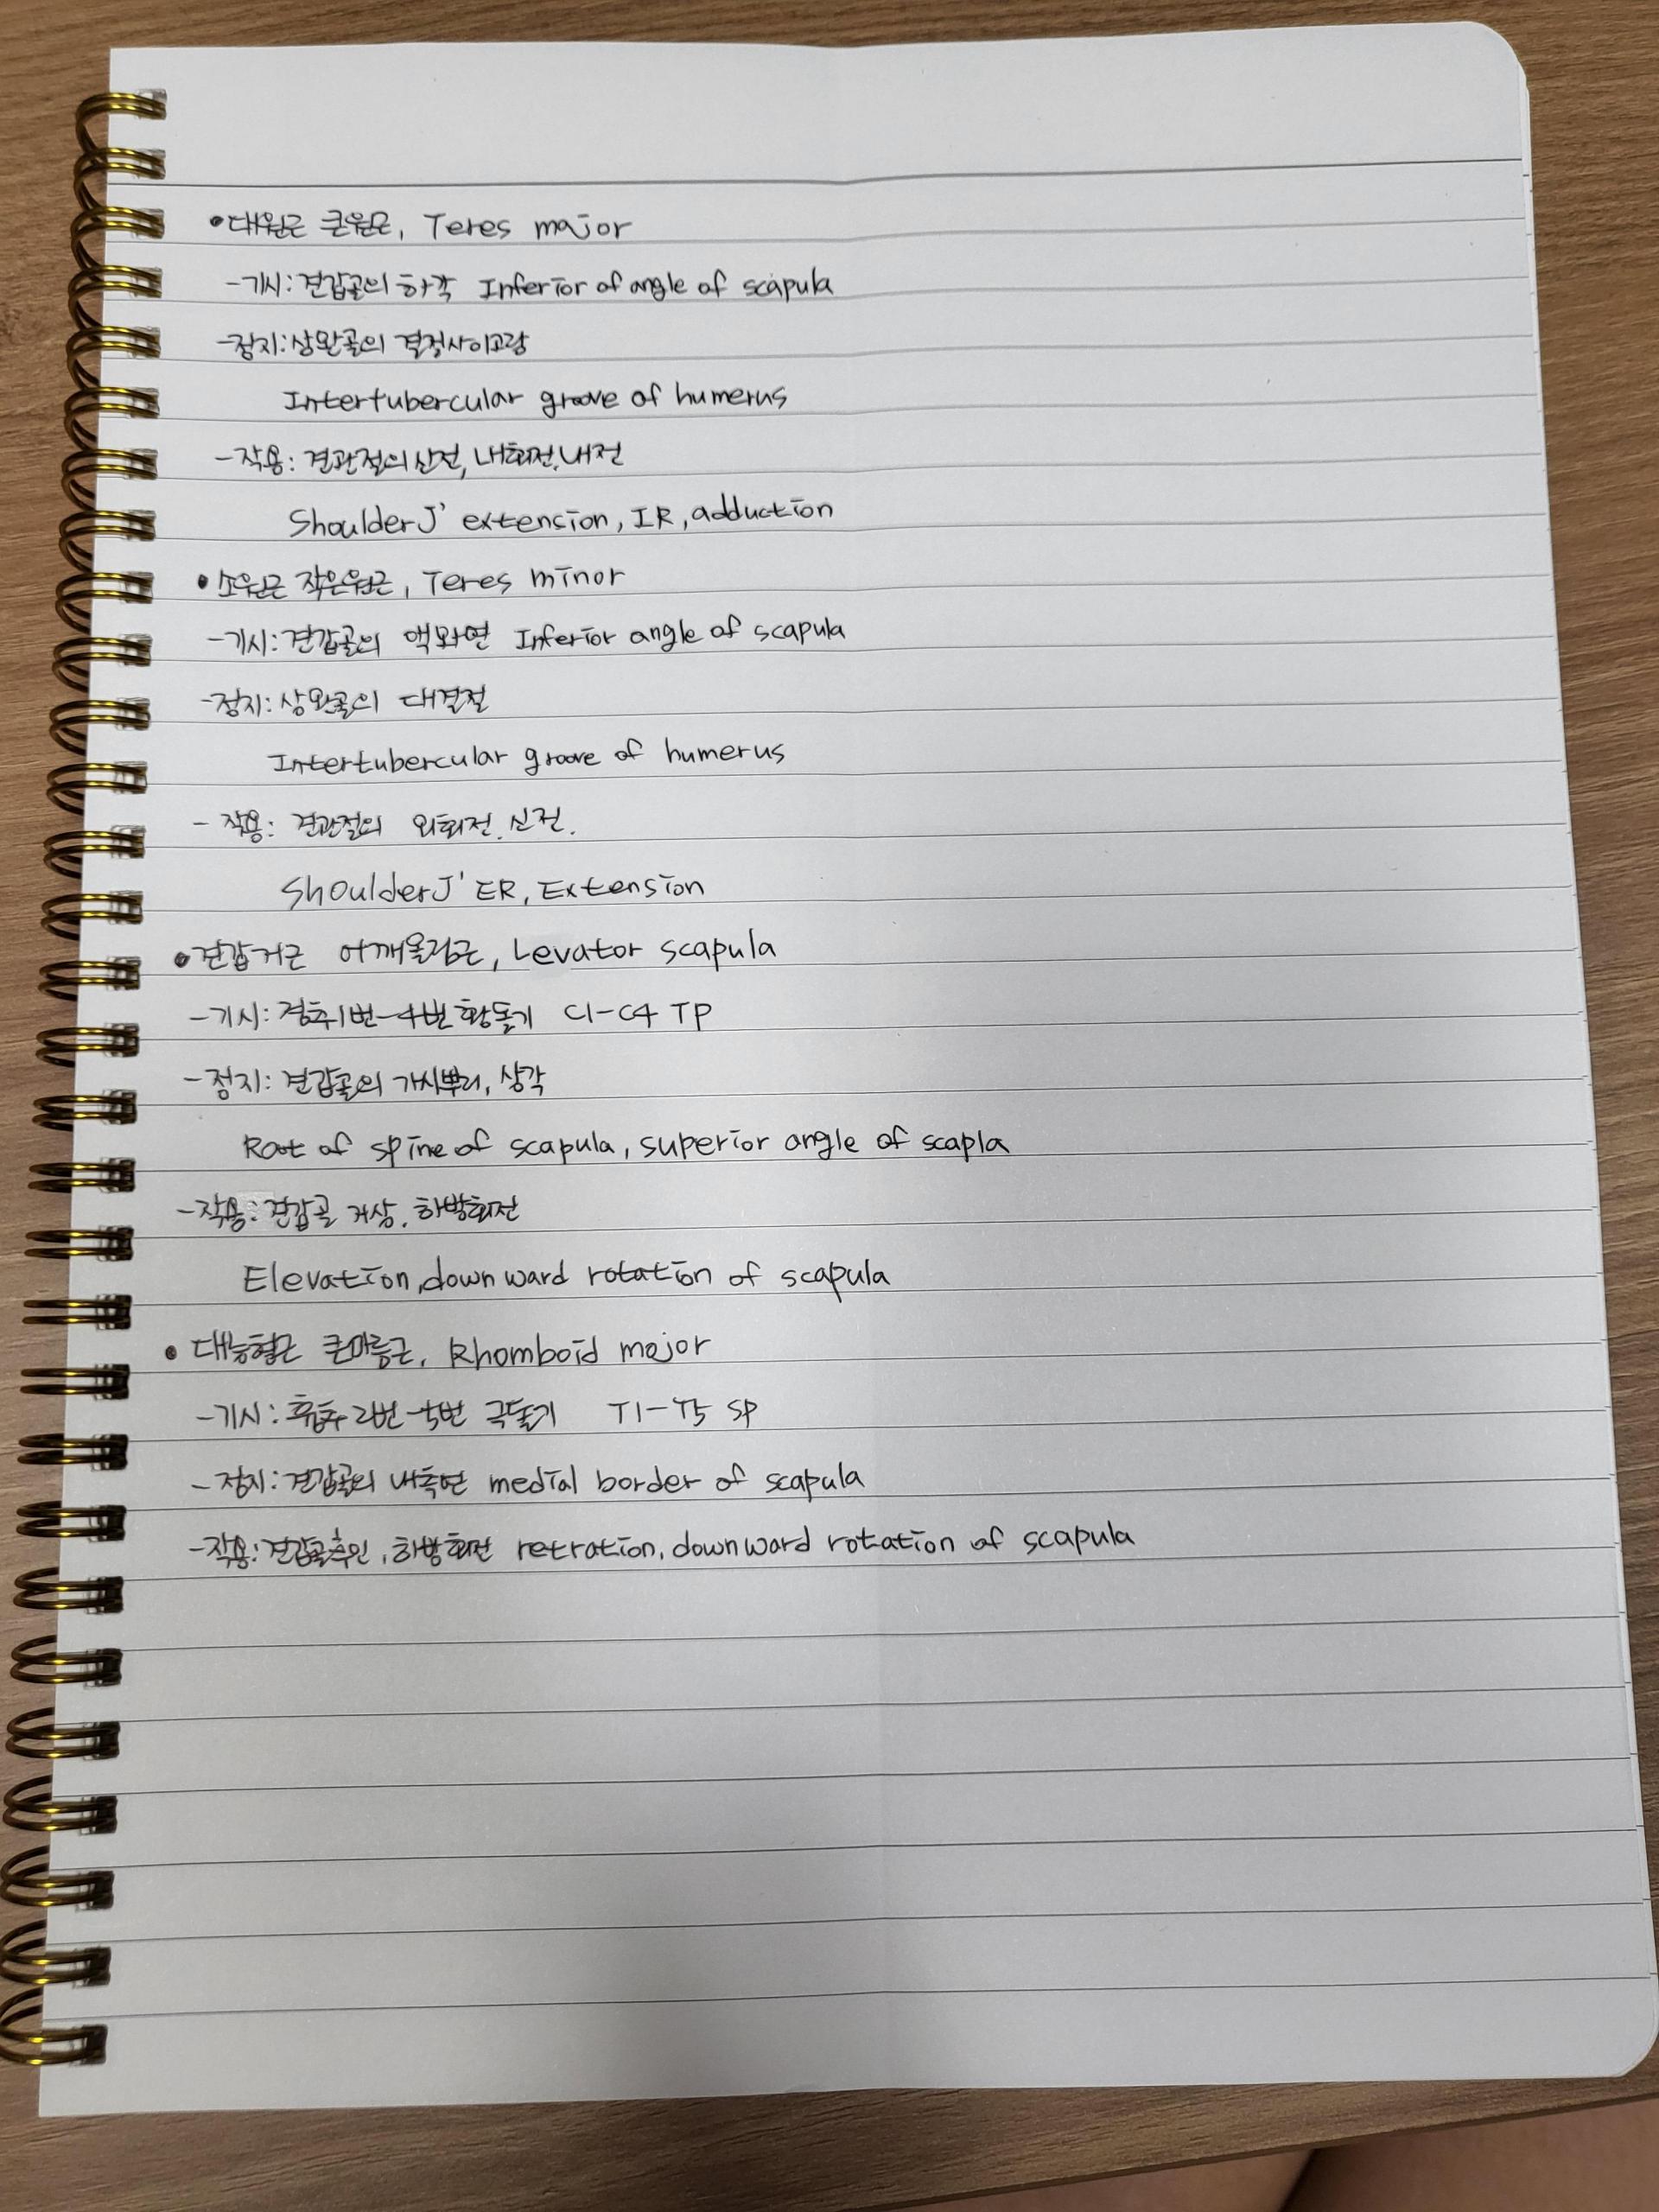 •대원근 큰원근, Teres major
-기시: 견갑골의 하각 Inferior of angle of scapula
-정지: 상완골의 결절사이고랑
Intertubercular groove of humerus
-작용: 견관절의 신전, 내회전, 내전
Shoulder J' extension, IR, adduction
•소원근 작은원근, Teres minor
-기시: 견갑골의 액와연 Inferior angle of scapula
-정지: 상완골의 대결절
Intertubercular groove of humerus
- 작용: 견관절의 외회전, 신전.
Shoulder J' ER, Extension
•견갑거근 어깨올림근, Levator scapula
-기시: 경추1번-4번 횡돌기 C1-C4 TP
-정지: 견갑골의 가시뿌리, 상각
Root of spine of scapula, superior angle of scapla
-작용: 견갑골 거상, 하방회전
Elevation, downward rotation of scapula
• 대능형근 큰마름근, Rhomboid major
-기시: 흉추 2번-5번 극돌기 T1-T5 SP
- 정지: 견갑골의 내측연 medial border of scapula
-작용: 견갑골후인, 하방회전 retration, downward rotation of scapula